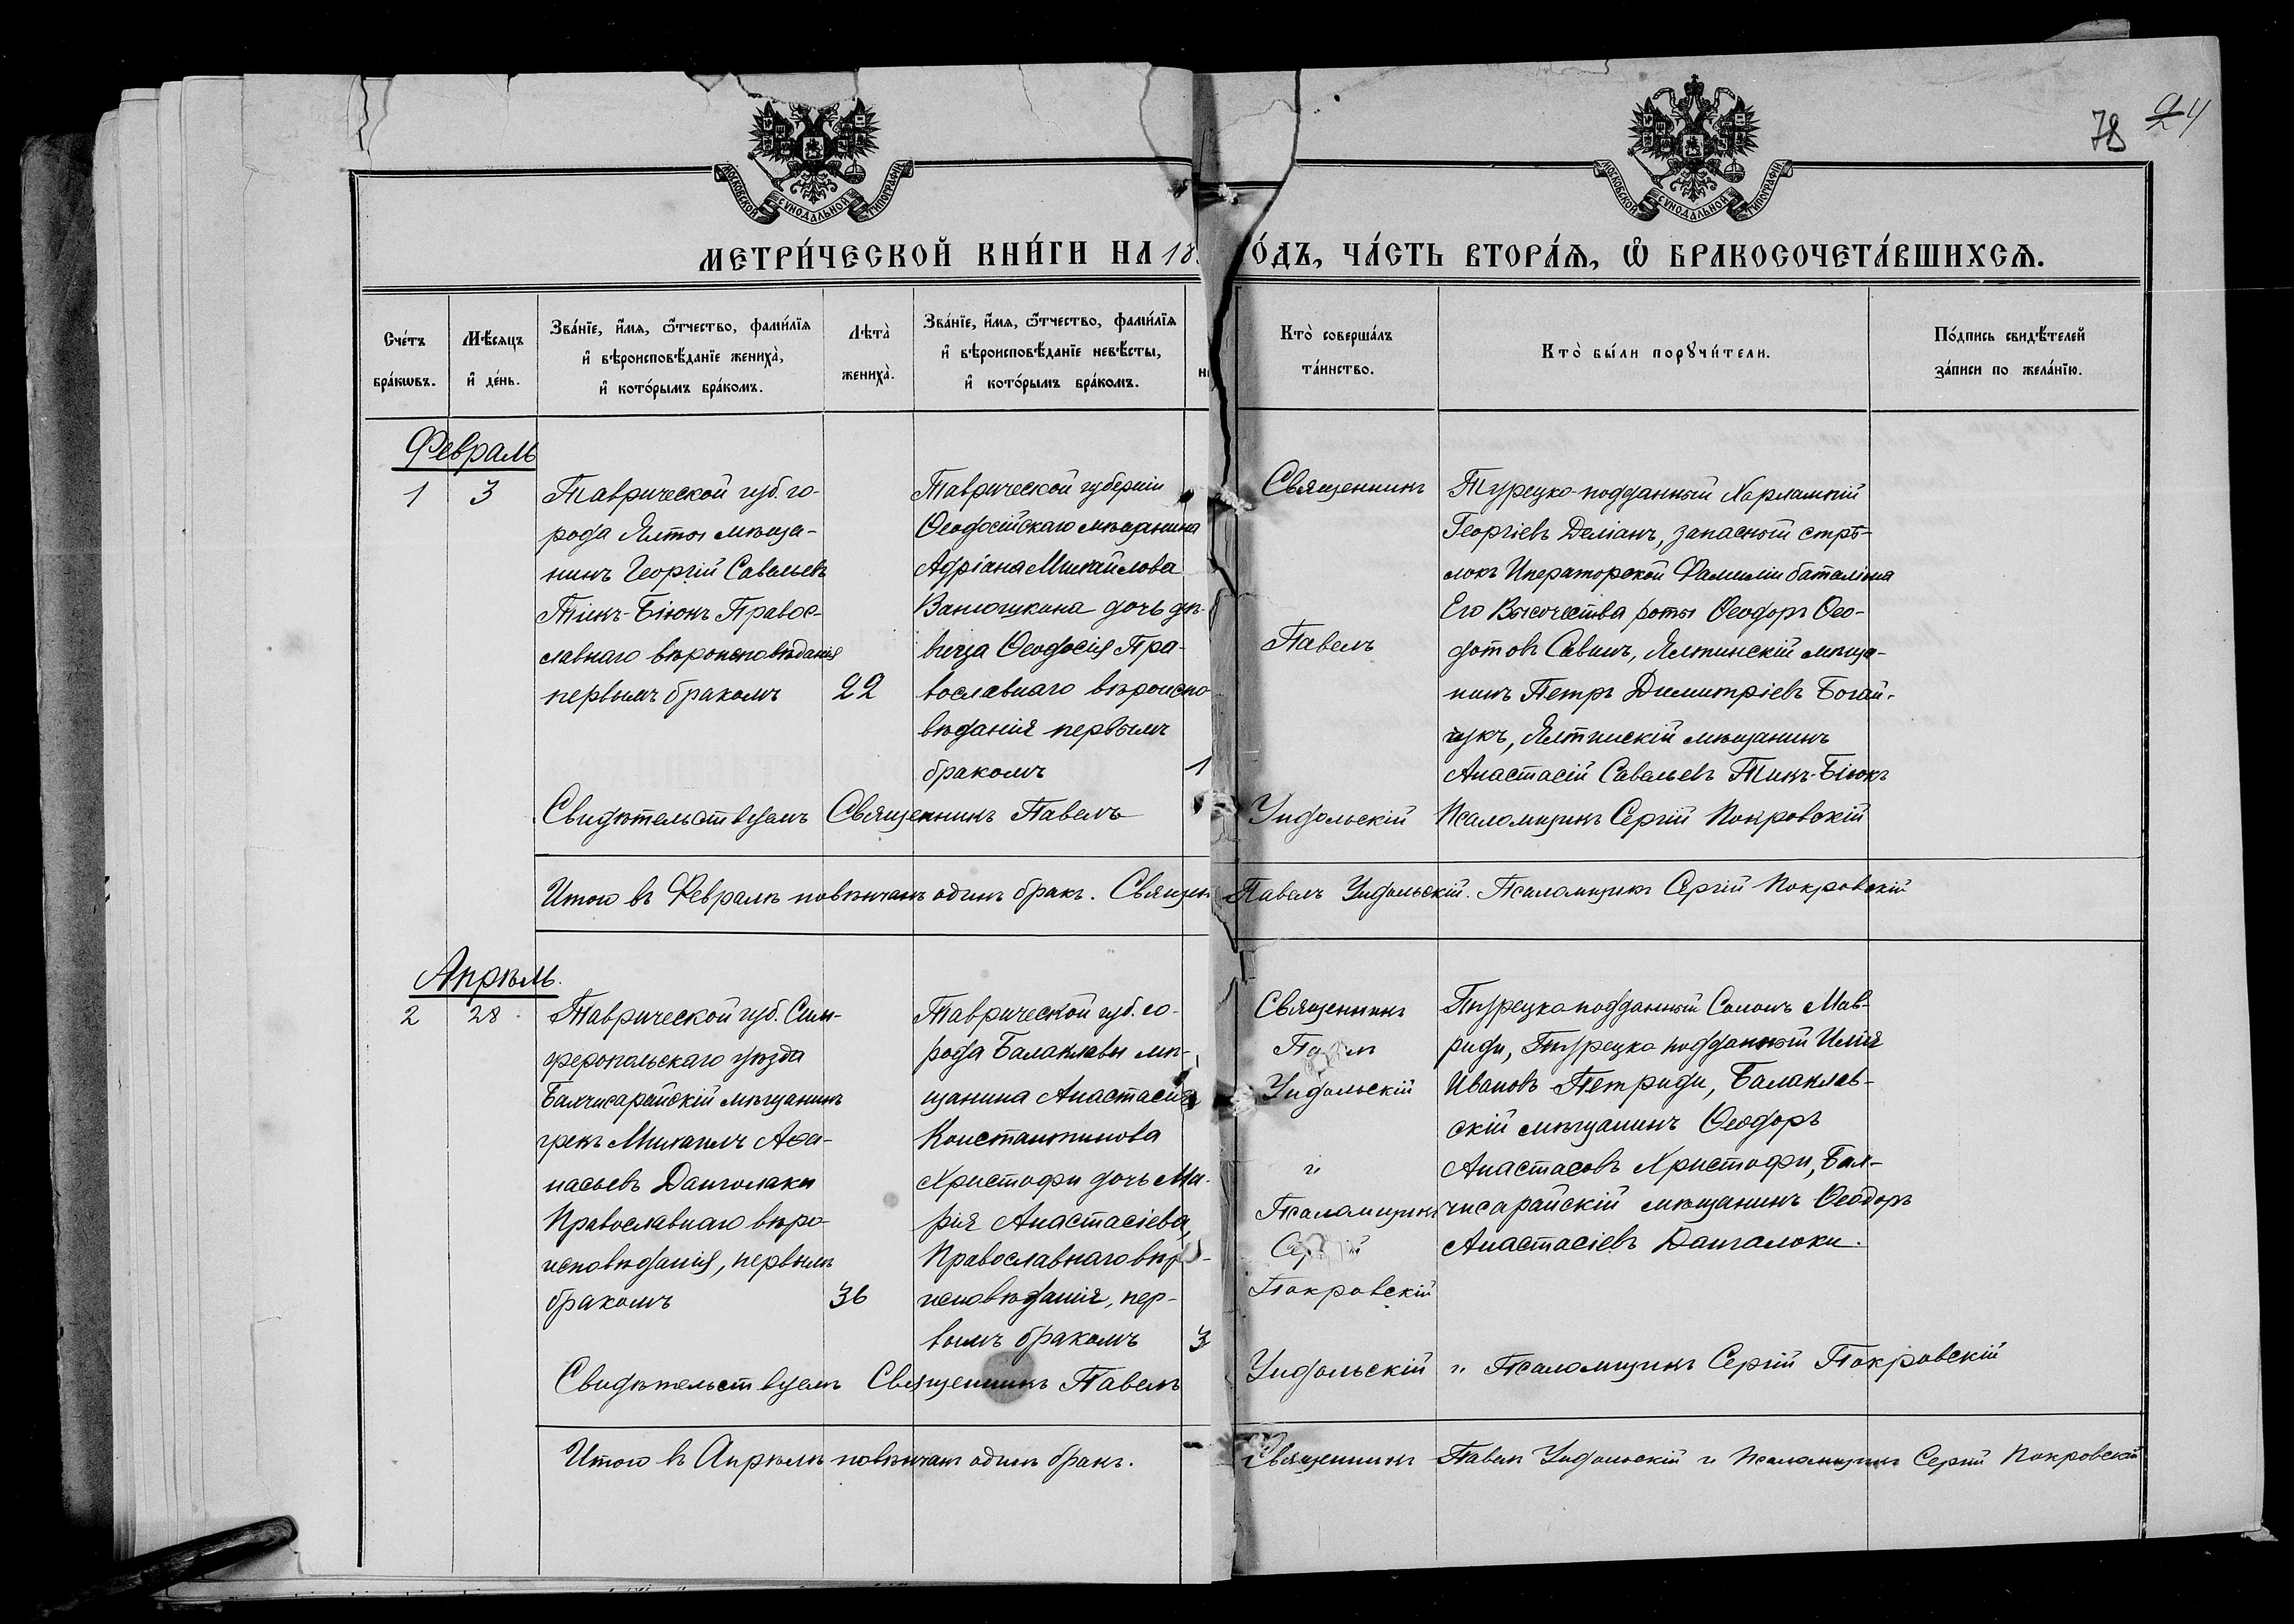 78 24
МОСКОВСКОЙ СѴНОДАЛЬНОЙ ТИПОГРАФІИ
МОСКОВСКОЙ СѴНОДАЛЬНОЙ ТИПОГРАФІИ
МЕТРИ́ЧЕСКОЙ КНИ́ГИ НА 18 О́ДЪ, ЧА́СТЬ ВТОРА́Ѧ, Ѽ БРАКОСОЧЕТА́ВШИХСѦ.
Сче́тъ
бра́кѡвъ.
Мѣ́сяцъ
и҆ де́нь.
Зва́нїе, и҆́мѧ, ѻ҆́тчество, фами́лїѧ
и҆ вѣроисповѣ́данїе жениха̀,
и҆ кото́рымъ бра́комъ.
Лѣта̀
жениха̀.
Зва́нїе, и҆́мѧ, ѻ҆́тчество, фами́лїѧ
и҆ вѣроисповѣ́данїе невѣ́сты,
и҆ кото́рымъ бра́комъ.
Кто̀ соверша́лъ
та́инство.
Кто̀ бы́ли порꙋчи́тели.
По́дпись свидѣ́телей
за́писи по жела́нїю.
Февраль
1 3
Таврической губ. го-
рода Ялты мѣща-
нинъ Георгій Савельевъ
Тикъ-Біюкъ Правос-
лавнаго вѣроисповѣданія
первымъ бракомъ 22
Таврической губерніи
Ѳеодосійскаго мѣщанина
Адріана Михайлова
Ванюшкина дочь дѣ-
вица Ѳеодосія Пра-
вославнаго вѣроиспо-
вѣданія первымъ
бракомъ 1
Священникъ
Павелъ
Турецко-подданный Харлампій
Георгіевъ Деліанъ, запасной стрѣ-
локъ Императорской Фамиліи баталіона
Его Высочества роты Ѳеодоръ Ѳео-
дотовъ Савинъ, Ялтинскій мѣща-
нинъ Петръ Димитріевъ Богай-
чукъ, Ялтинскій мѣщанинъ
Анастасій Савельевъ Тикъ-Біюкъ
Свидѣтельствуемъ Священникъ Павелъ Ундольскій Псаломщикъ Сергій Покровскій
Итого въ Февралѣ повѣнчанъ одинъ бракъ. Священ Павелъ Ундольскій. Псаломщикъ Сергій Покровскій
Апрѣль.
2 28
Таврической губ. Сим-
феропольскаго уѣзда
Бахчисарайскій мѣщанинъ
грекъ Михаилъ Аѳа-
насьевъ Данголаки
Православнаго вѣро-
исповѣданія, первымъ
бракомъ 36
Таврической губ. го-
рода Балаклавы мѣ-
щанина Анастасія
Константинова
Христофи дочь Ма-
рія Анастасіева,
Православнаго вѣр -
исповѣданія, пер-
вымъ бракомъ 3
Священникъ
Па лъ
Ундольскій
и
Псаломщикъ
Сергій
Покровскій
Турецко подданный Соломъ Мав-
риди, Турецко подданный Илія
Ивановъ Петриди, Балаклав-
скій мѣщанинъ Ѳеодоръ
Анастасовъ Христофи, Бах-
чисарайскій мѣщанинъ Ѳеодоръ
Анастасіевъ Дангалоки.
Свидѣтельствуемъ Священникъ Павелъ Ундольскій и Псаломщикъ Сергій Покровскій
Итого въ Апрѣлѣ повѣнчанъ одинъ бракъ. Священникъ Павелъ Ундольскій и Псаломщикъ Сергій Покровскій